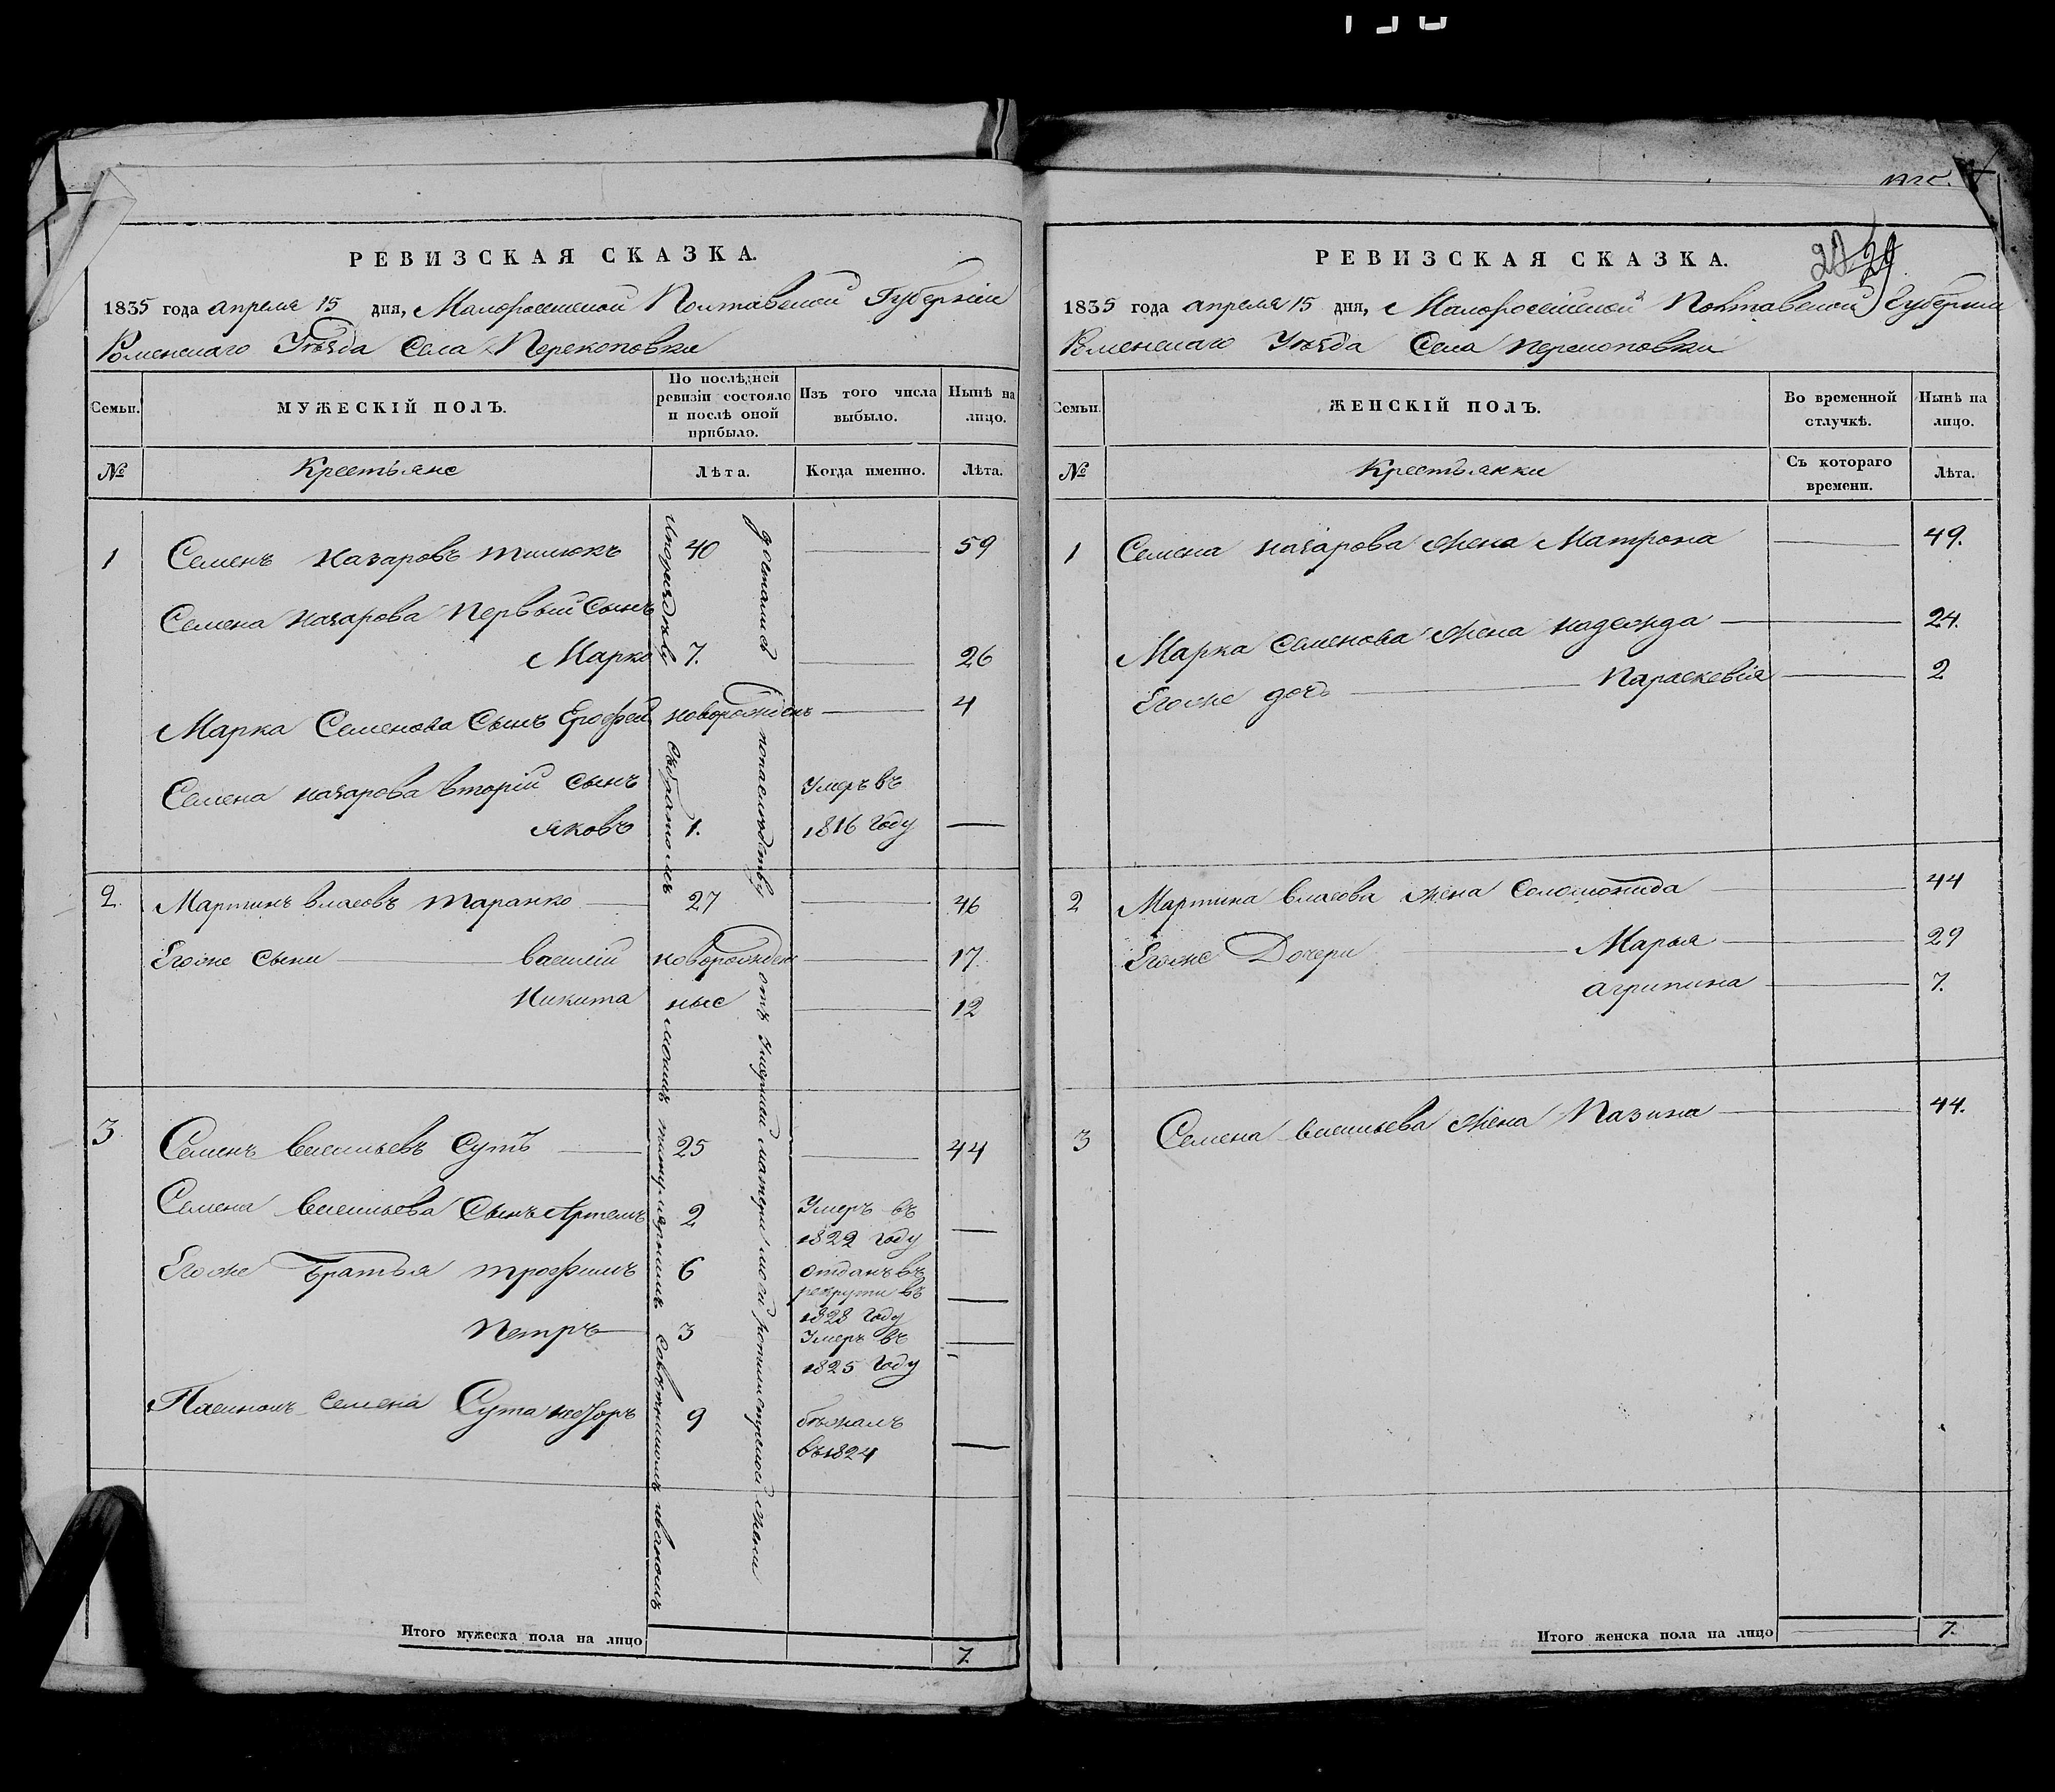 РЕВИЗСКАЯ СКАЗКА.
1835 года апреля 15 дня, Малоросийской Полтавской Губернии
Роменскаго Уѣзда Села Перекоповки
Семьи.
МУЖЕСКІЙ ПОЛЪ.
По послѣдней ревизіи состояло и послѣ оной прибыло.
Изъ того числа выбыло.
Нынѣ на лицо.
№
Крестьяне
Лѣта.
Когда именно.
Лѣта.
1 Семенъ Назаровъ 40 59
Семена Назарова первый сынъ
Марко 7. 26
Марка Семенова сынъ Ерофей новорожденъ 4
Семена Назарова вторій сынъ Умеръ въ
Яковъ 1. 1816 году
2. Мартинъ Власовъ Таранко 27 46
Егоже сыни Василій новорожден 17.
Никита ные 12
3 Семенъ Васильевъ Сутъ 25 44
Семена Васильева сынъ Артемъ 2 Умеръ въ
1822 году
Егоже братья Трофимъ 6 отданъ въ
рекруты въ
1828 году
Петръ 3 Умеръ въ
1825 году
Пасинокъ Семена Сута 9 бѣжалъ
въ 1824
достался по наслѣдству отъ умершей матери
съ братомъ
Итого мужеска пола на лицо 7.
29
РЕВИЗСКАЯ СКАЗКА.
1835 года апреля 15 дня, Малоросійской Полтавской Губернии
Роменскаго Уѣзда Села Перекоповки
Семьи.
ЖЕНСКІЙ ПОЛЪ.
Во временной отлучкѣ.
Нынѣ на лицо.
№
Крестьянки
Съ котораго времени.
Лѣта.
1 Семена Назарова жена Матрона 49.
Марка Семенова жена Надежда 24.
Егоже дочь Параскевія 2
2 Мартина Власова жена Соломонида 44
Егоже Дочери Марья 29
Агрипина 7.
3 Семена Васильева жена Пазина 44.
Итого женска пола на лицо 7.